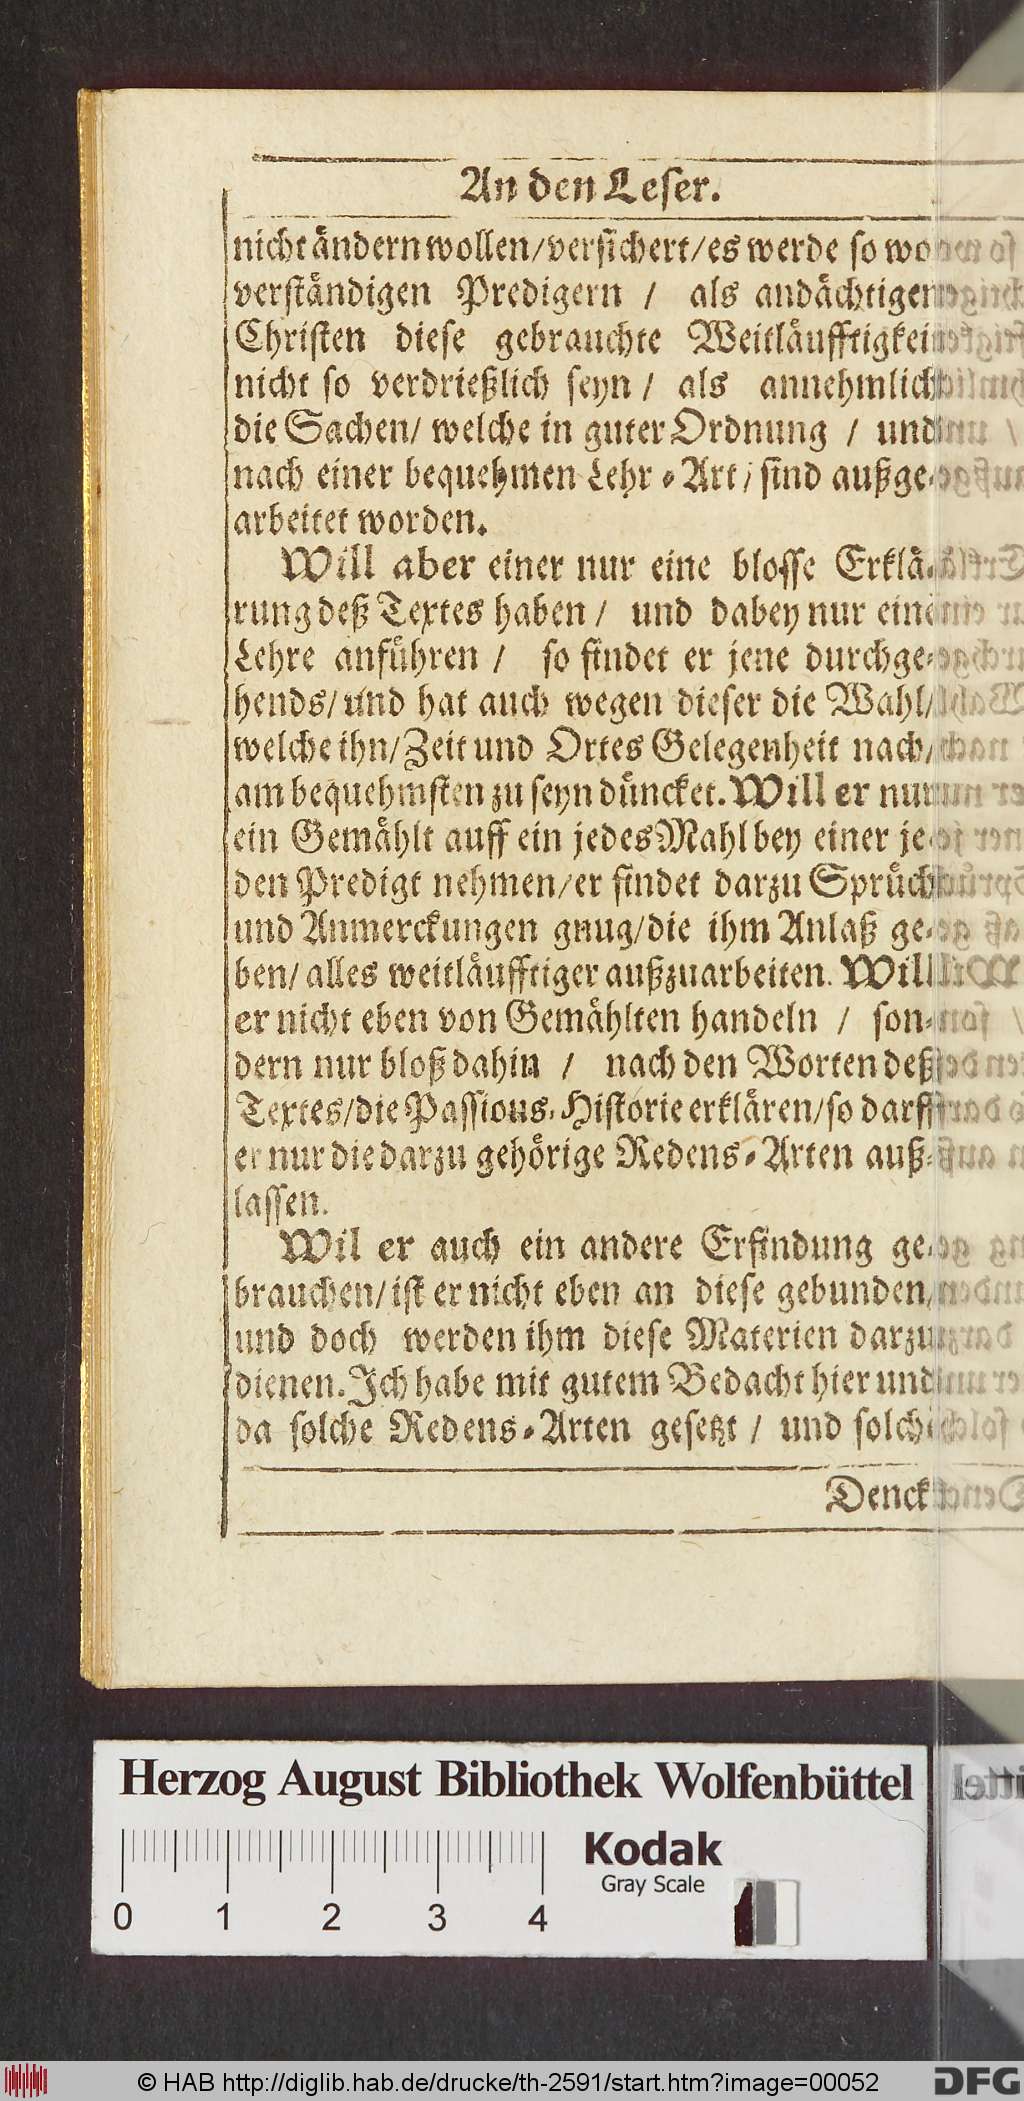 An den Leser.
nicht ändern wollen/versichert/es werde so wo
verständigen Predigern / als andächtigen
Christen diese gebrauchte Weitläufftigkeit
nicht so verdrießlich seyn / als annehmlich
die Sachen/ welche in guter Ordnung / und
nach einer bequehmen Lehr-Art/ sind außge-
arbeitet worden.
Will aber einer nur eine blosse Erklä-
rung deß Textes haben / und dabey nur eine
Lehre anführen / so findet er jene durchge-
hends/ und hat auch wegen dieser die Wahl/
welche ihn/Zeit und Ortes Gelegenheit nach/
am bequehmsten zu seyn düncket. Will er nur
ein Gemählt auff ein jedes Mahl bey einer je-
den Predigt nehmen/er findet darzu Sprüch
und Anmerckungen gnug/die ihm Anlaß ge-
ben/ alles weitläufftiger außzuarbeiten. Will
er nicht eben von Gemählten handeln / son-
dern nur bloß dahin / nach den Worten deß
Textes/die Passions-Historie erklären/so darff
er nur die darzu gehörige Redens-Arten auß-
lassen.
Wil er auch ein andere Erfindung ge-
brauchen/ist er nicht eben an diese gebunden/
und doch werden ihm diese Materien darzu
dienen. Ich habe mit gutem Bedacht hier und
da solche Redens-Arten gesetzt / und solch
Denck
Herzog August Bibliothek Wolfenbüttel
Kodak
Gray Scale
0 1 2 3 4
© HAB http://diglib.hab.de/drucke/th-2591/start.htm?image=00052
DFG